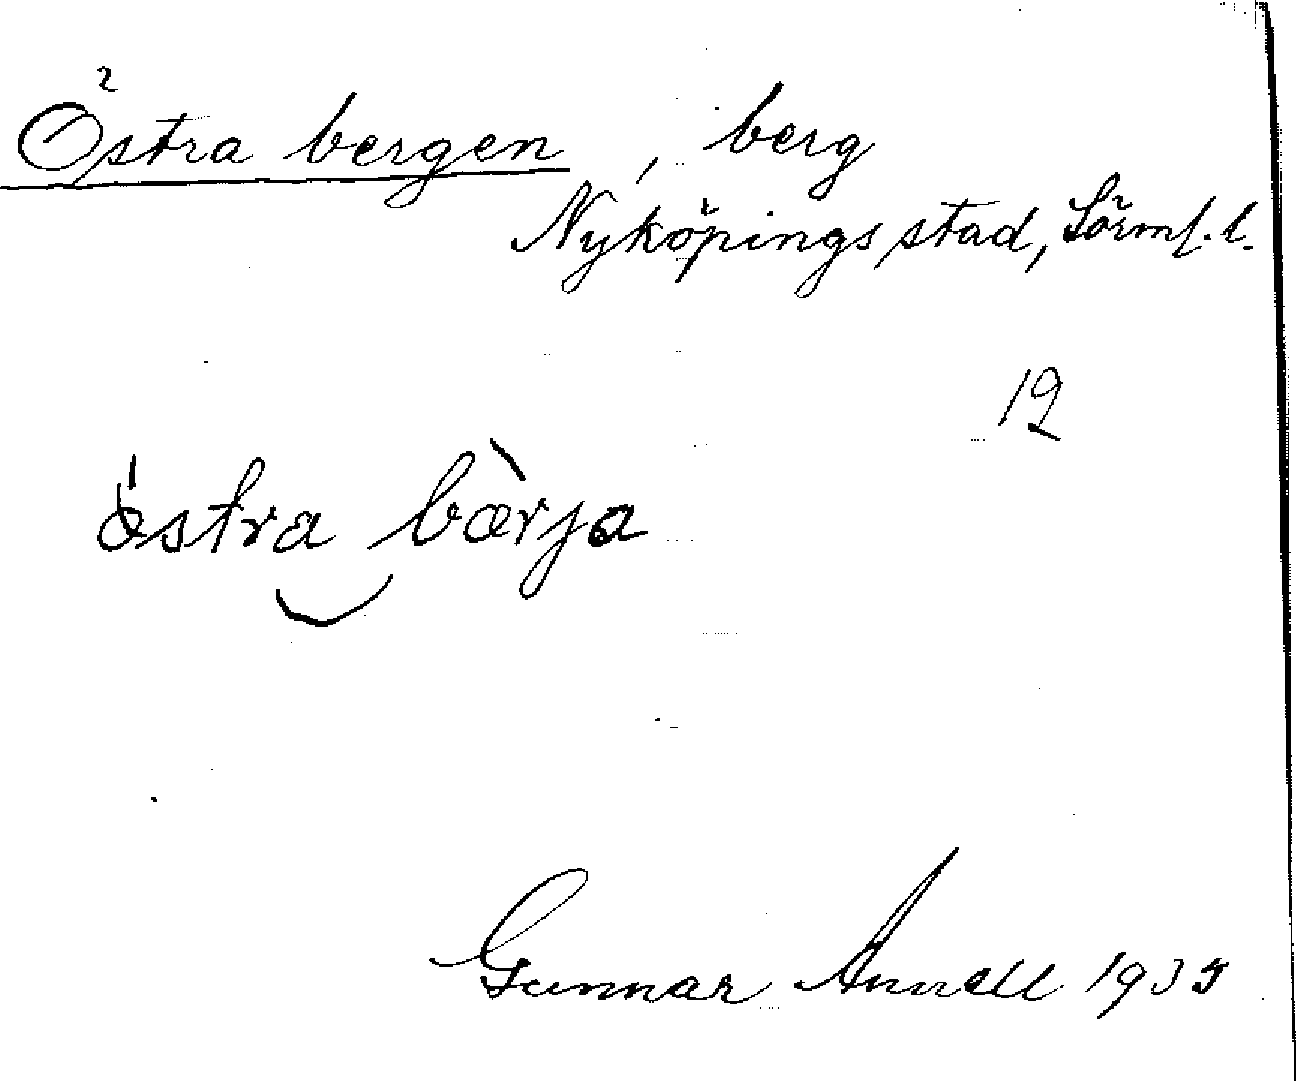 Östra bergen, berg
Nyköpings stad, Sörml. l.
19
östra bærja
Gunnar Annell 1935